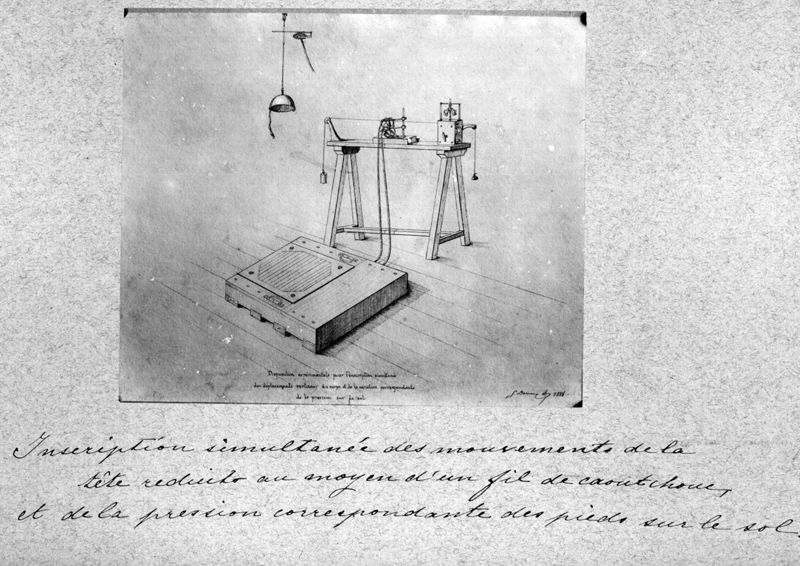 Disposition expérimentale pour l'inscription simultanée
des déplacements verticaux du corps et de la variation correspondante
de la pression sur le sol.
1886
Inscription simultanée des mouvements de la
tête reduits au moyen d'un fil de caoutchouc,
et de la pression correspondante des pieds sur le sol.